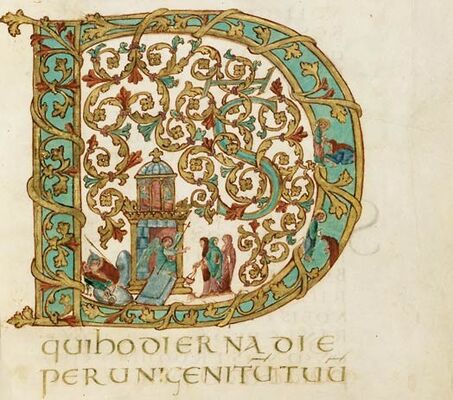 DS
QUI HODIERNA DIE
PER UNIGENITŪ TUŪ